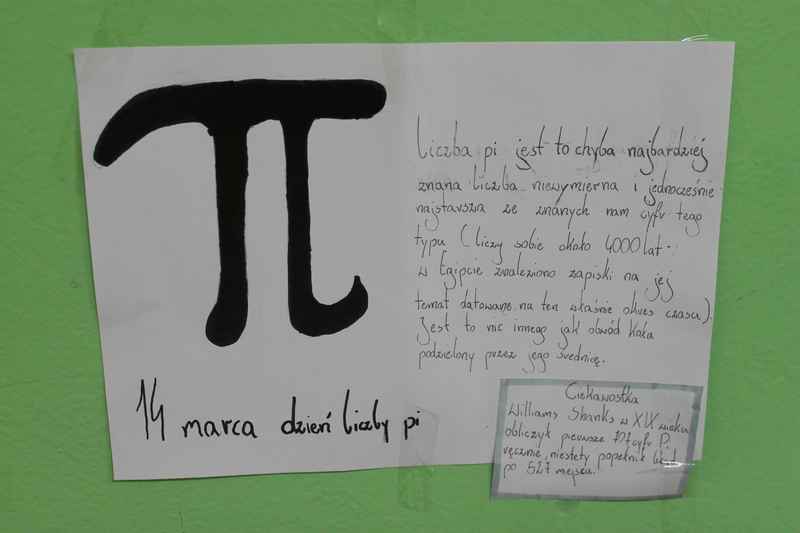 π
Liczba pi jest to chyba najbardziej
znana liczba niewymierna i jednocześnie
najstarsza ze znanych nam cyfr tego
typu (liczy sobie około 4000 lat.
w Egipcie znaleziono zapiski na jej
temat datowane na ten właśnie okres czasu).
Jest to nic innego jak obwód koła
podzielony przez jego średnicę.
14 marca dzień liczby pi
Ciekawostka
Williams Shanks w XIX wieku
obliczył pierwsze 707 cyfr Pi
ręcznie, niestety popełnił błąd
po 527 miejscu.